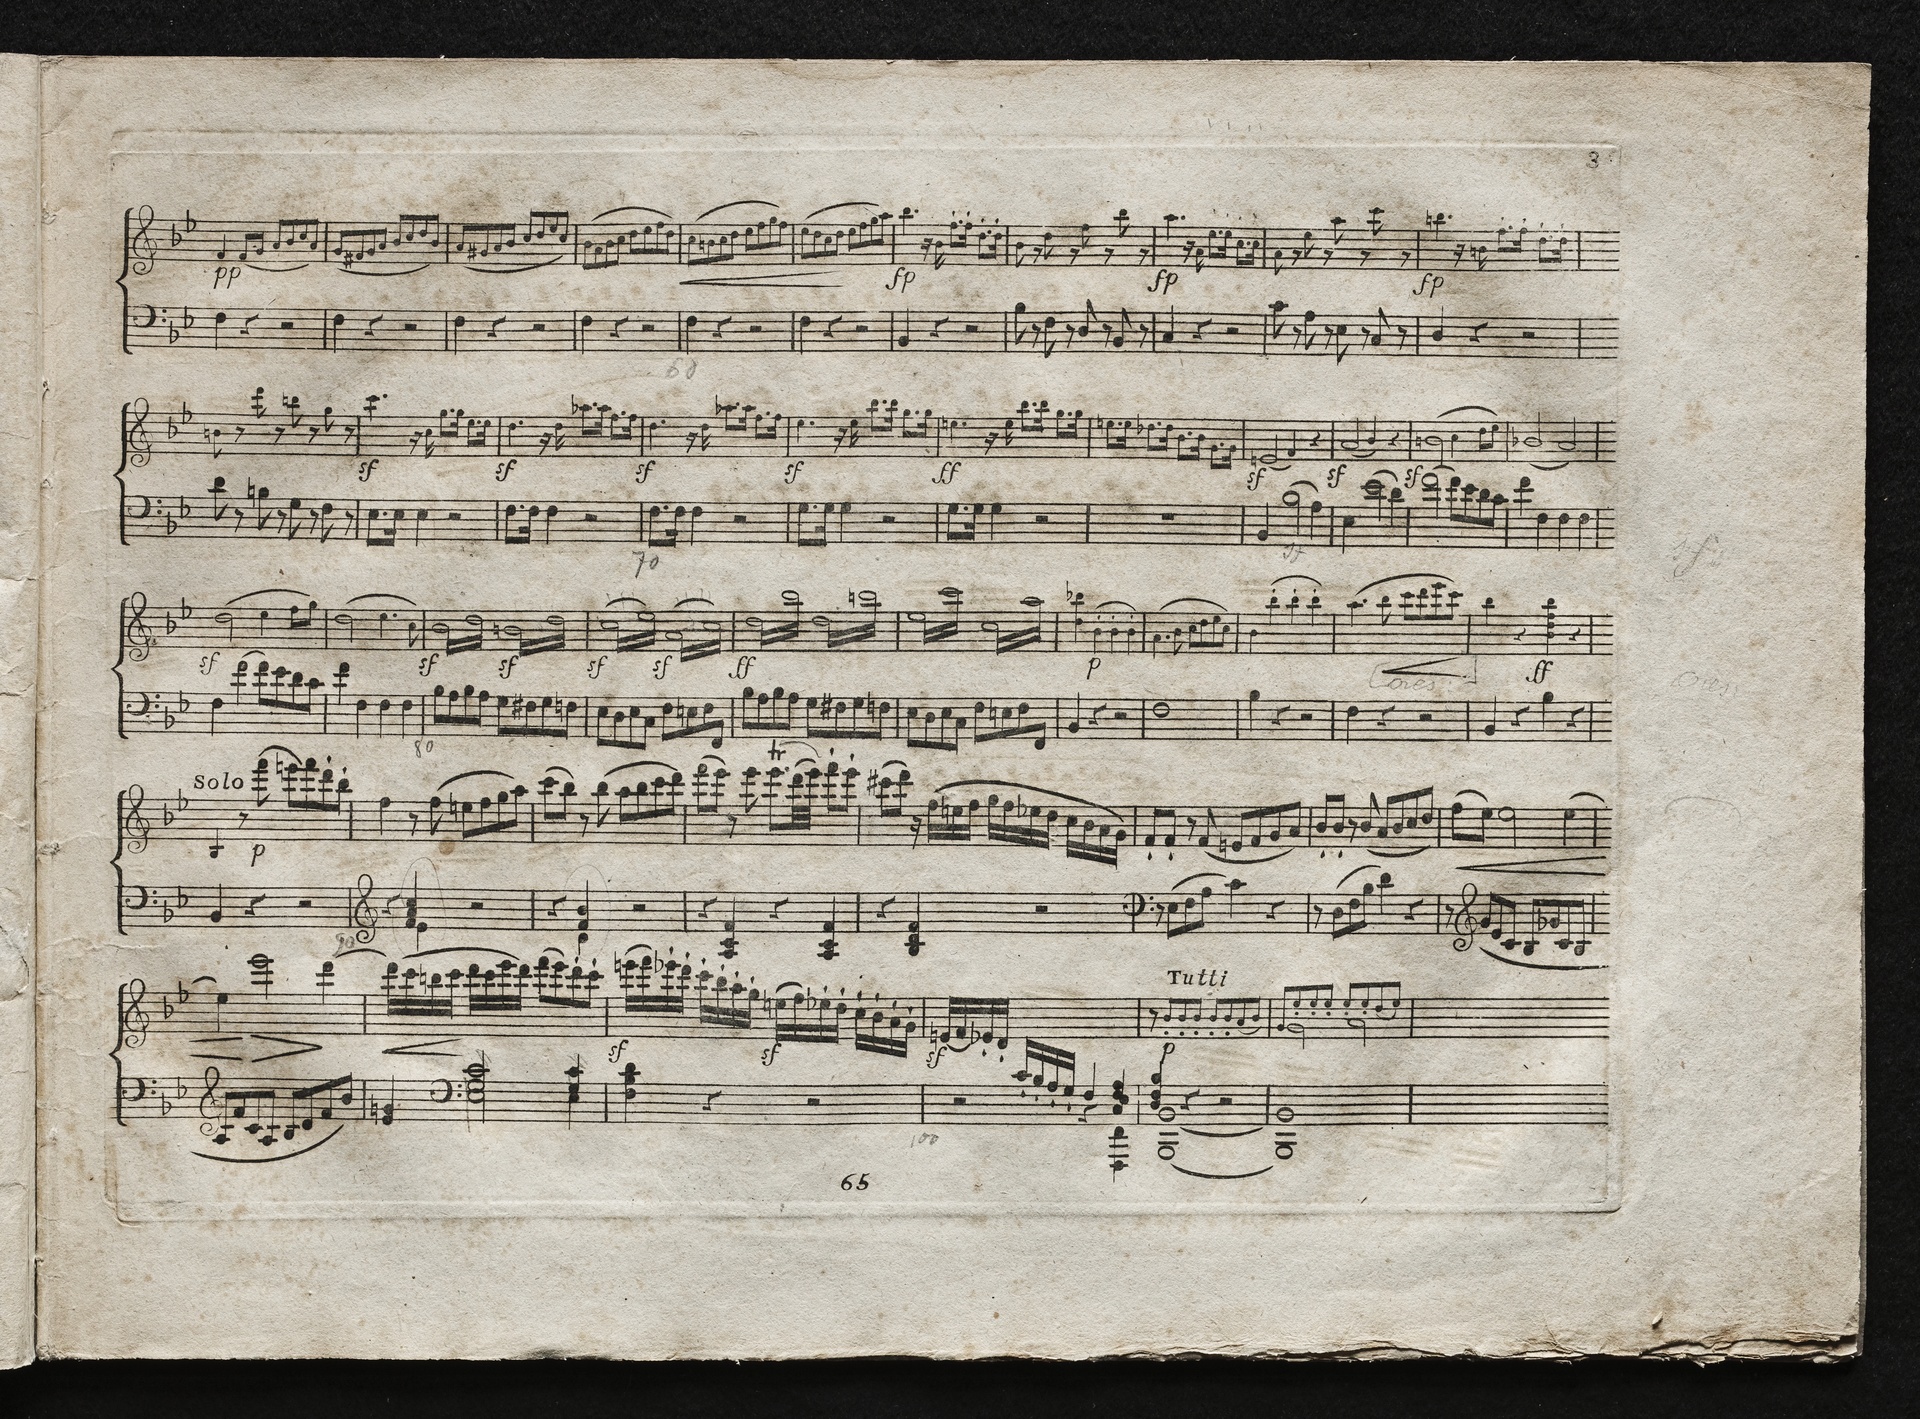 3
pp fp fp fp
60
sf sf sf sf ff sf sf sf
sf
70
sf sf sf sf sf ff p ff
Cres
Cres
80
Solo p tr
90
Tutti
sf sf sf p
100
65